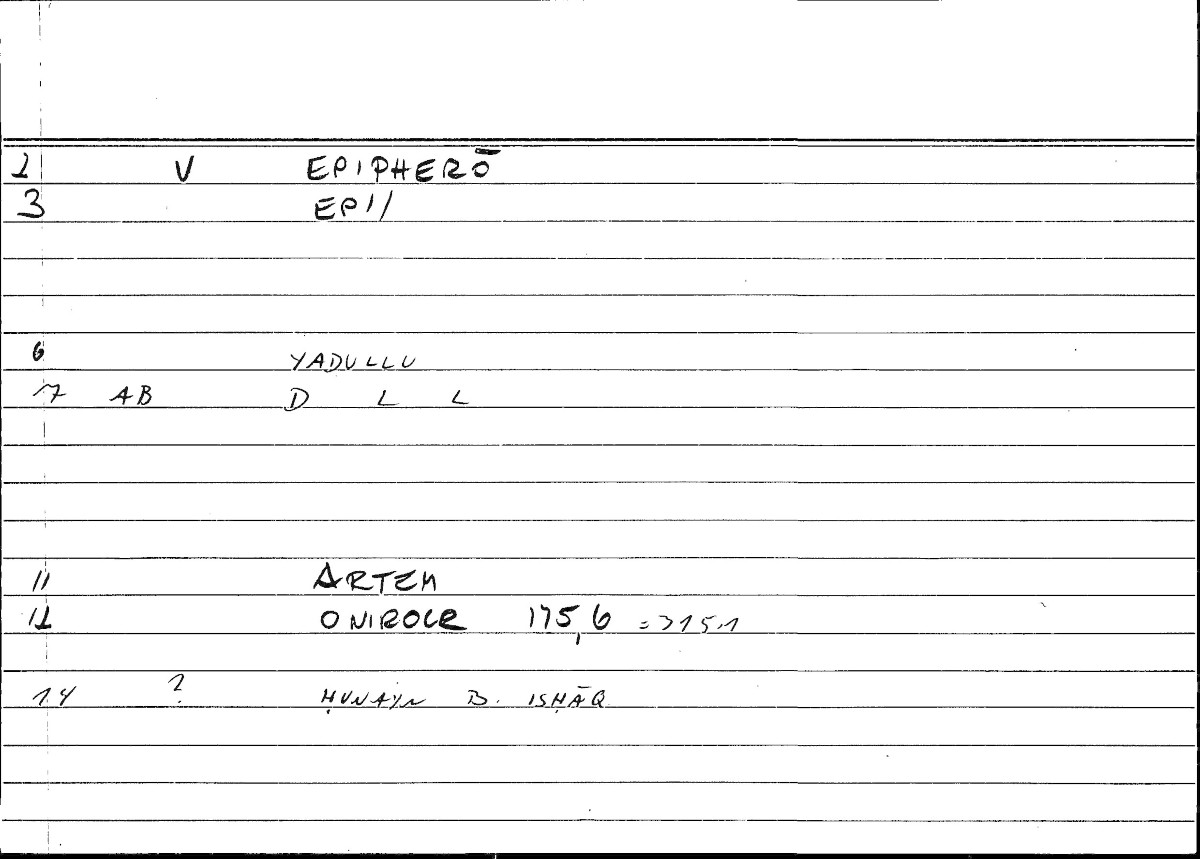 2 V EPIPHERŌ
3 EPI/
6 YADULLU
7 AB D L L
11 ARTEM
12 ONIROCR 175,6 =315,1
14 ? ḤUNAYN B. ISḤĀQ